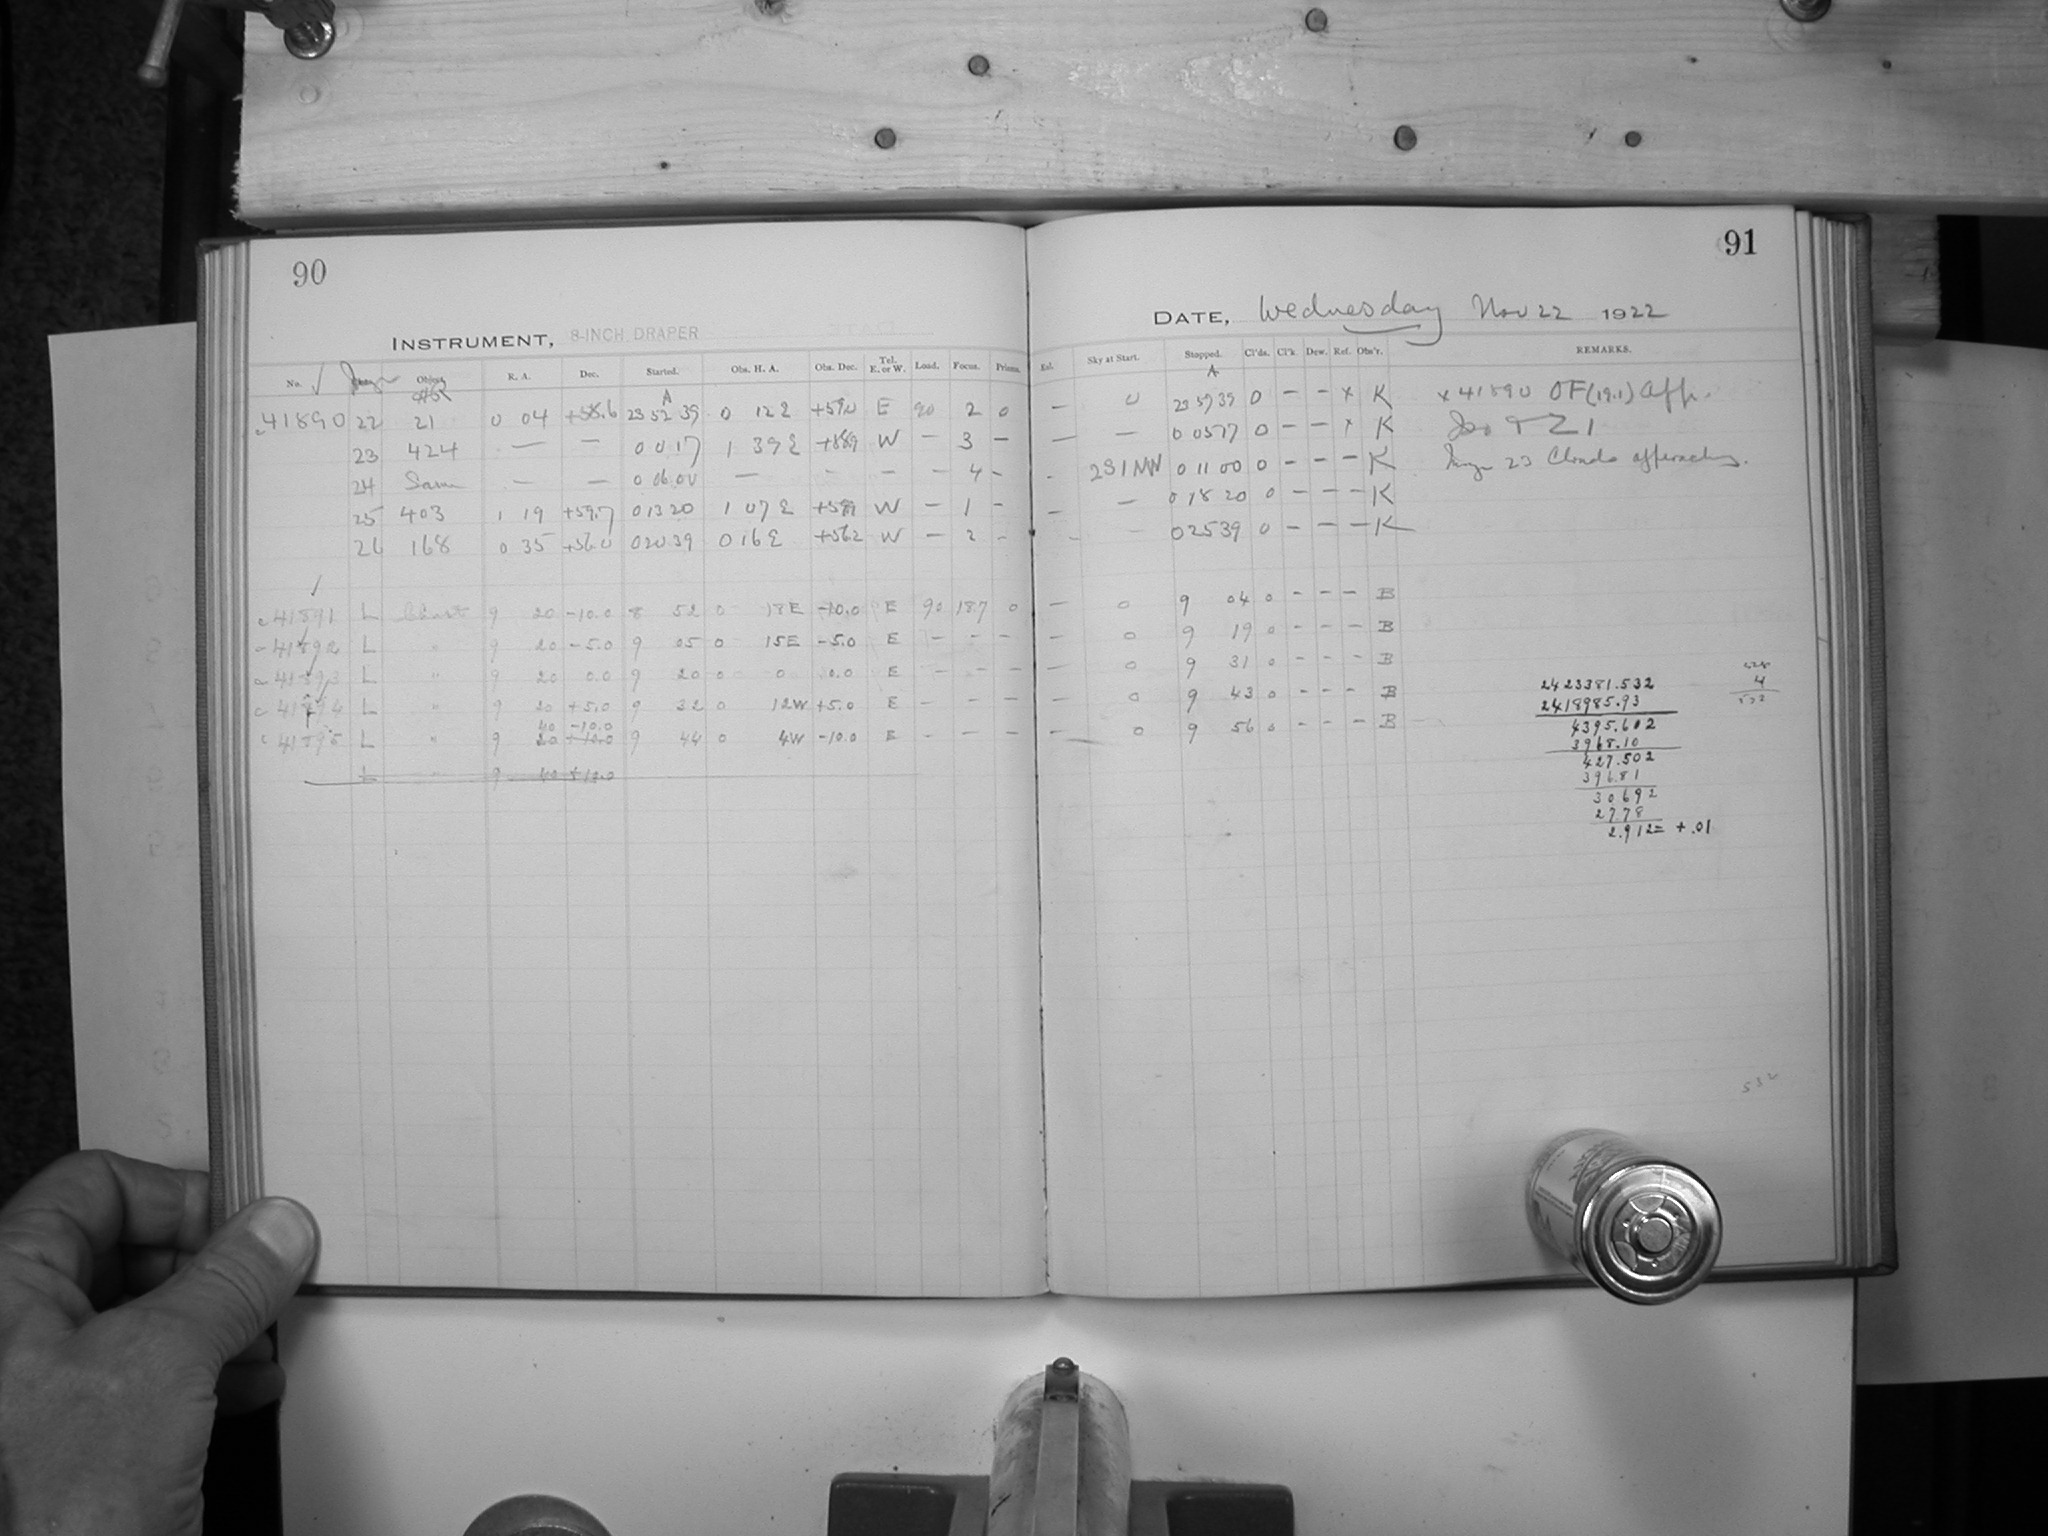 90
INSTRUMENT, 8-INCH DRAPER
No. Object R. A. Dec. Started. Obs. H. A. Obs. Dec. Tel. E. or W. Load. Focus. Prisms.
A
41890 22 21 0 04 +58.6 23 52 39 0 12 E +59.0 E 90 2 0
23 424 — — 0 0 17 1 39 E W — 3 —
24 Same — — 0 06 00 — - - - 4 -
25 403 1 19 +59.7 0 13 20 1 07 E W — 1 -
26 168 0 35 +56.0 0 20 39 0 16 E +56.2 W — 2 -
41891 L 9 20 -10.0 8 52 0 18 E -10.0 E 90 187 0
41892 L " 9 20 -5.0 9 05 0 15E -5.0 E - - -
41893 L " 9 20 0.0 9 20 0 0 0.0 E - - -
41894 L " 9 20 +5.0 9 32 0 12W +5.0 E - - -
40 -10.0
41895 L " 9 20 +10.0 9 44 0 4W -10.0 E - - -
L " 9 40 +10.0
91
DATE, Wednesday Nov 22 1922
Exl. Sky at Start. Stopped. Cl'ds. Cl'k. Dew. Ref. Obs'r. REMARKS.
A
— 0 23 57 39 0 — — x K x 41890 OF (19.1) app.
— — 0 05 17 0 — — x K
- 2S1NW 0 11 00 0 - - - K 23 Clouds approaching.
- — 0 18 20 0 - - - K
- - 0 25 39 0 - - - K
— 0 9 04 0 - - - B
— 0 9 19 0 - - - B
— 0 9 31 0 - - - B
— 0 9 43 0 - - - B
— 0 9 56 0 - - - B
4
532
2423381.532
2418985.93
4395.602
3968.10
427.502
396.81
30692
27.78
2.912= +.01
532